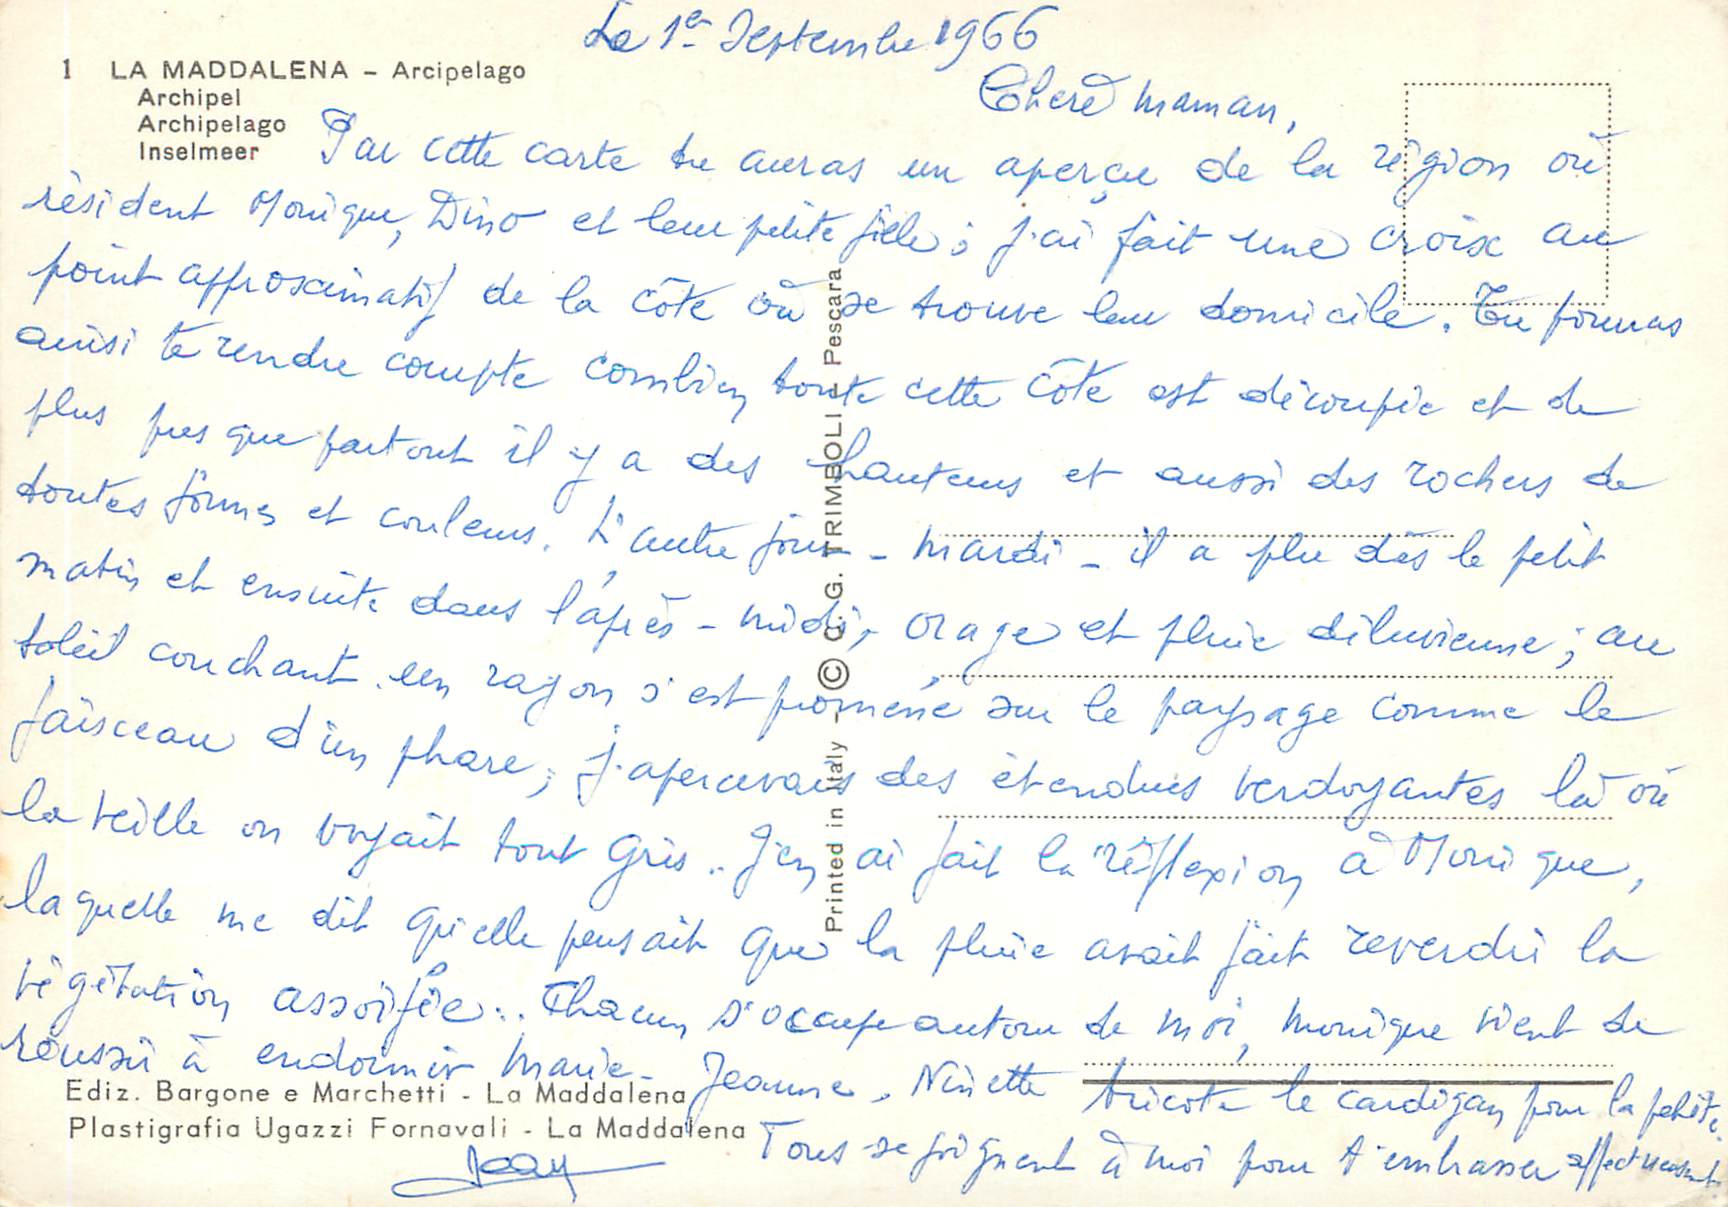 Le 1er Septembre 1966
1 LA MADDALENA - Arcipelago
Archipel
Archipelago
Inselmeer
Chère maman,
Par cette carte tu auras un aperçu de la région où
résident Monique, Dino et leur petite fille ; j'ai fait une croix au
point approximatif de la côte où se trouve leur domicile. Tu pourras
ainsi te rendre compte combien toute cette côte est découpée et de
plus presque partout il y a des hauteurs et aussi des rochers de
toutes formes et couleurs. L'autre jour - mardi - il a plu dès le petit
matin et ensuite dans l'après-midi, orage et pluie diluvienne ; au
soleil couchant un rayon s'est promené sur le paysage comme le
faisceau d'un phare ; j'apercevais des étendues verdoyantes là où
la veille on voyait tout gris.. J'en ai fait la réflexion à Monique,
laquelle me dit qu'elle pensait que la pluie avait fait reverdir la
végétation assoiffée... Chacun s'occupe autour de moi, Monique vient de
réussir à endormir Marie-Jeanne. Ninette tricote le cardigan pour la petite.
Tous se joignent à moi pour t'embrasser affectueusement.
Jean
Ediz. Bargone e Marchetti - La Maddalena
Plastigrafia Ugazzi Fornavali - La Maddalena
Printed in Italy - © C.G. TRIMBOLI - Pescara